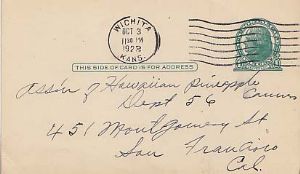 WICHITA
OCT 3
11 30 PM
1928
KANS.
THIS SIDE OF CARD IS FOR ADDRESS
Ass'n of Hawaiian Pineapple
Canners
Dept 56
451 Montgomery St
San Francisco
Cal.